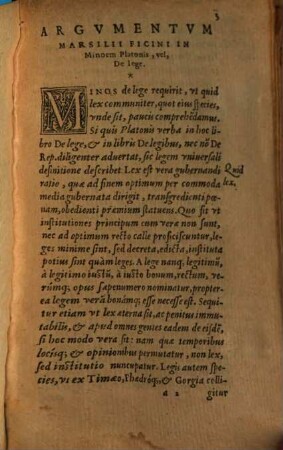 3
ARGVMENTVM
MARSILII FICINI IN
Minoem Platonis, vel,
De lege.
*
MINOS de lege requirit, vt quid
lex communiter, quot eius species,
vnde sit, paucis comprehẽdamus.
Si quis Platonis verba in hoc li-
bro De lege, & in libris De legibus, nec nõ De
Rep. diligenter aduertat, sic legem vniuersali
definitione describet Lex est vera gubernandi
Quid
ratio, quæ ad finem optimum per commoda
lex.
media gubernata dirigit, transgredienti pœ-
nam, obedienti præmium statuens. Quo fit vt
institutiones principum com vera non sunt,
nec ad optimum recto calle proficiscuntur,
leges minime sint, sed decreta, edicta, instituta
potius sint quàm leges. A lege nanq; legitimũ,
à legitimo iustũ, à iusto bonum, rectum, ve-
rúmq; opus sæpenumero nominatur, proptere-
ea legem verã bonámq; esse necesse est. Sequi-
tur etiam vt lex æterna sit, ac penitus immu-
tabilis, & apud omnes gentes eadem de eisdẽ,
si hoc modo vera sit: nam quæ temporibus
locísq; & opinionibus permutatur, non lex,
sed institutio nuncupatur. Legis autem spe-
cies, vt ex Timæo, Phædróq; & Gorgia colli-
d 2
gitur